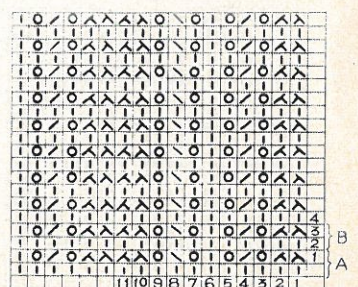 4
3 B
2
1 A
11 10 9 8 7 6 5 4 3 2 1